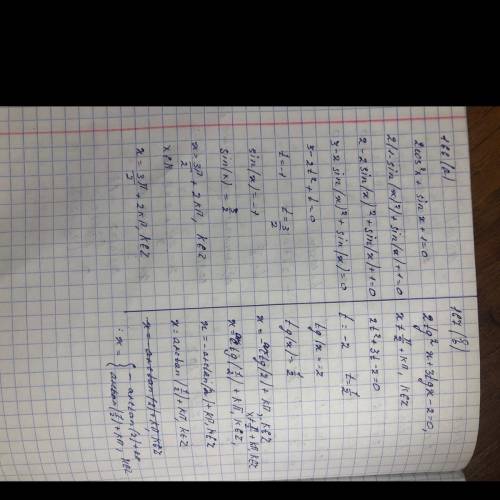 2cos²x + sin x + 1 = 0
2(1 - sin(x)²) + sin(x) + 1 = 0
2 - 2 sin(x)² + sin(x) + 1 = 0
3 - 2 sin(x)² + sin(x) = 0
3 - 2t² + t = 0
t = -1 t = 3/2
sin(x) = -1
sin(x) = 3/2
x = 3π/2 + 2kπ, k∈Z
x∉R
x = 3π/2 + 2kπ, k∈Z
2tg²x + 3tgx - 2 = 0
x ≠ π/2 + kπ, k∈Z
2t² + 3t - 2 = 0
t = -2 t = 1/2
tg(x) = -2
tg(x) = 1/2
x = -arctan(2) + kπ, k∈Z
x = arctan(1/2) + kπ, k∈Z
x = -arctan(2) + kπ, k∈Z